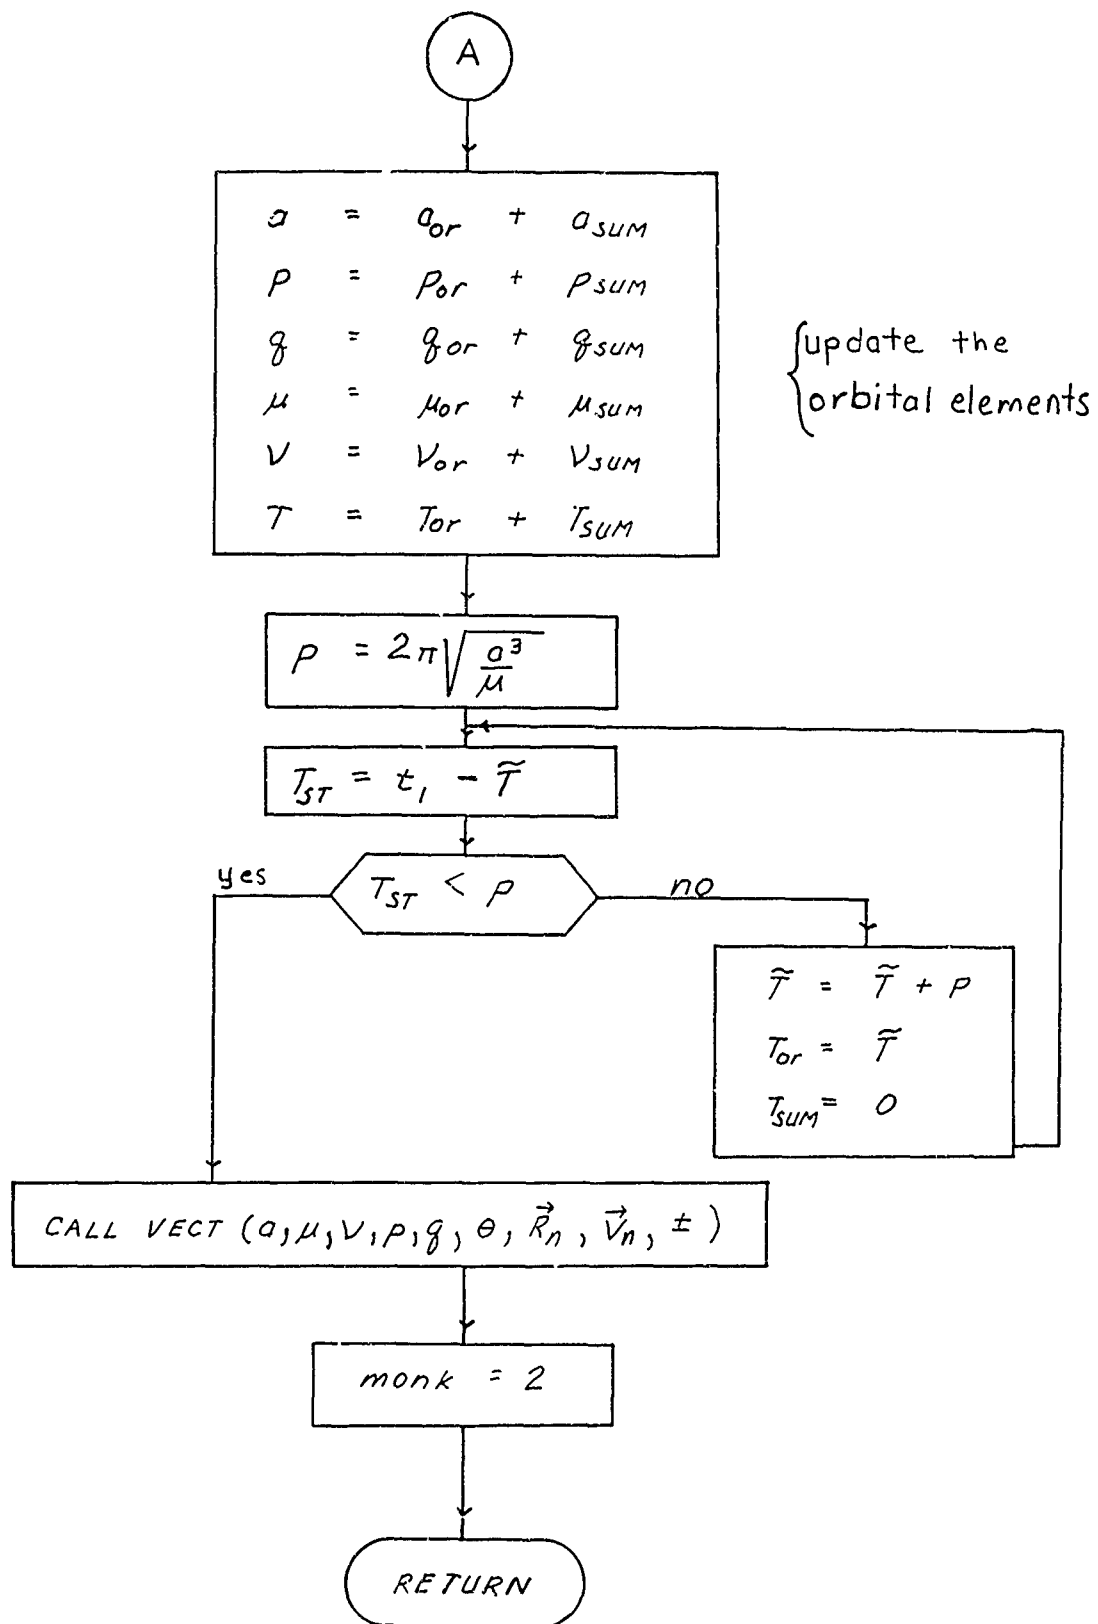 A
a = a_or + a_SUM
p = p_or + p_SUM
q = q_or + q_SUM
μ = μ_or + μ_SUM
ν = ν_or + ν_SUM
T = T_or + T_SUM
{update the
orbital elements
P = 2π√(a³/μ)
T_ST = t₁ - T̃
yes
T_ST < P
no
T̃ = T̃ + P
T_or = T̃
T_SUM = 0
CALL VECT (a, μ, ν, p, q, θ, R⃗_n, V⃗_n, ±)
monk = 2
RETURN